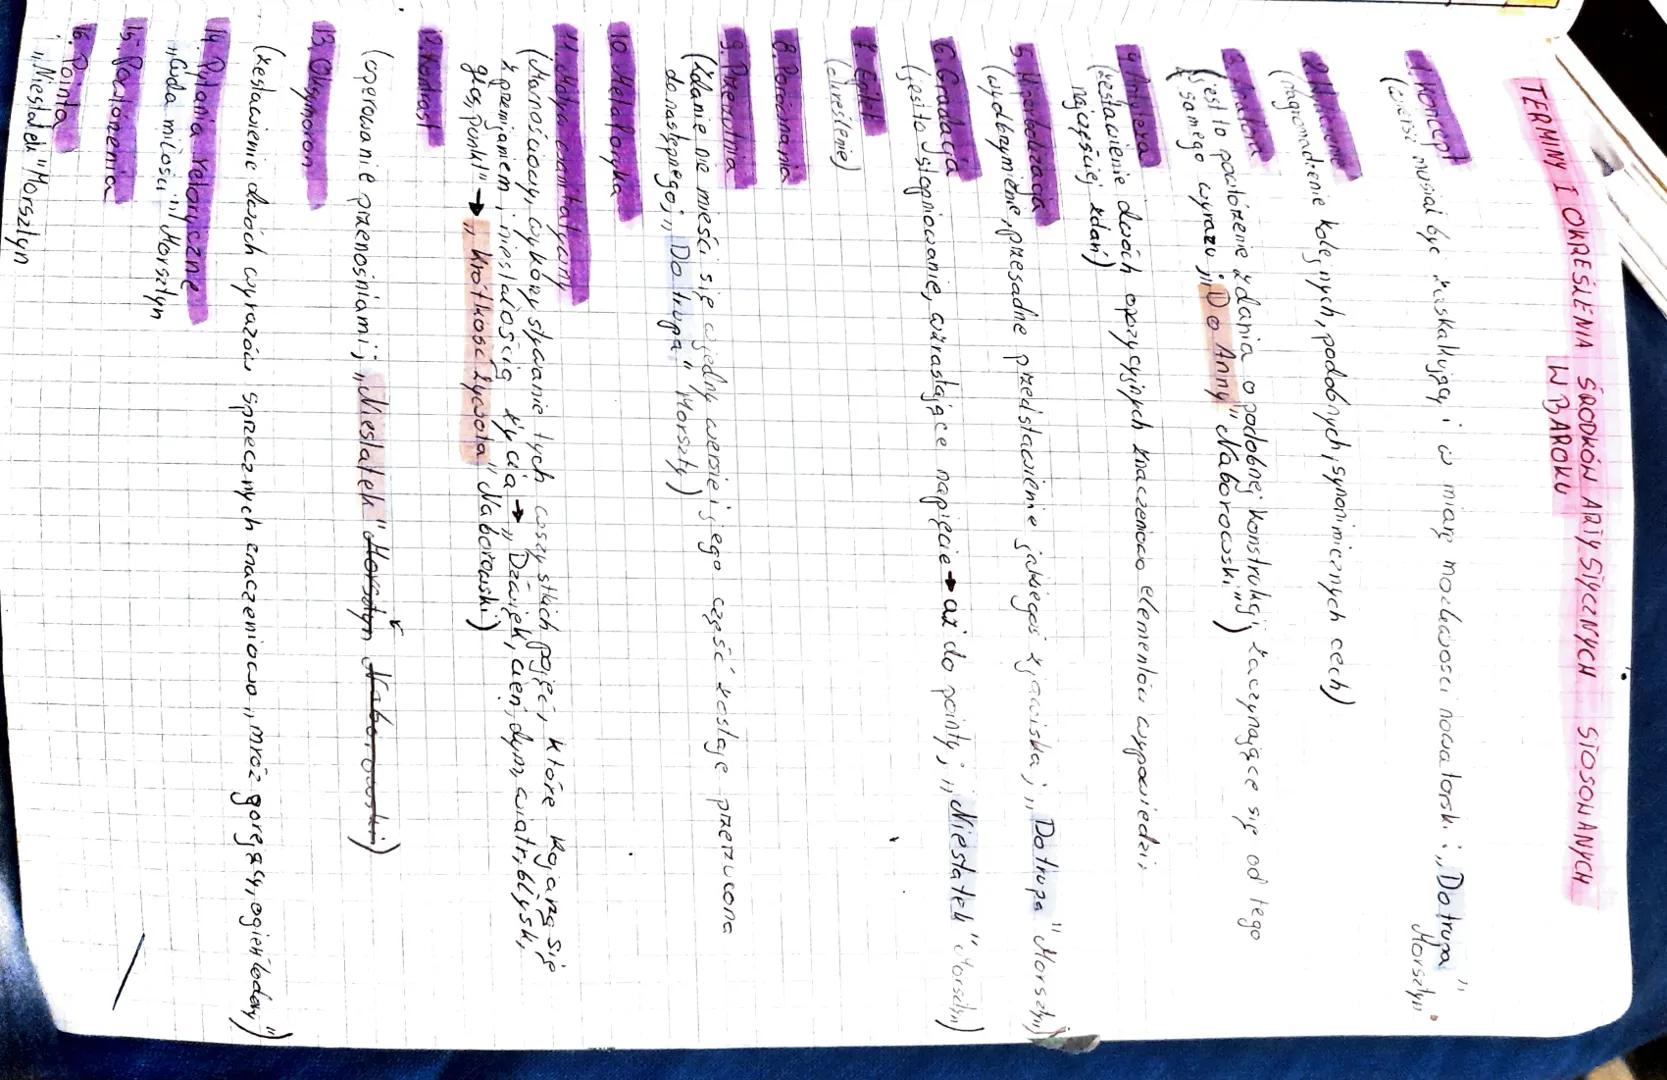 TERMINY I OKREŚLENIA ŚRODKÓW ARTYSTYCZNYCH STOSOWANYCH
W BAROKU
1. Koncept
(wiersz musiał być zaskakujący i w miarę możliwości nowatorski; „Do trupa"
Morsztyn
2.
(nagromadzenie kolejnych, podobnych, synonimicznych cech)
3. Anafora
(jest to powtórzenie zdania o podobnej konstrukcji, zaczynające się od tego
samego wyrazu; „Do Anny" Naborowski")
4. Antyteza
(zestawienie dwóch opozycyjnych znaczeniowo elementów wypowiedzi,
najczęściej zdań)
5. Hiperbolizacja
(wyolbrzymienie, przesadne przedstawienie jakiegoś zjawiska; „Do trupa" Morsztyn)
6. Gradacja
(jest to stopniowanie, wzrastające napięcie → aż do pointy; „Niestatek" Morsztyn)
7. Epitet
(określenie)
8. Porównania
9. Przerzutnia
(zdanie nie mieści się w jednym wersie i jego część zostaje przerzucona
do następnego; „Do trupa" Morszty)
10. Metaforyka
11. Motyw wanitatywny
(Marnościowy, wykorzystywanie tych wszystkich pojęć, które kojarzą się
z przemijaniem i niestałością życia → „Dźwięk, cień, dym, wiatr, błysk,
głos, punkt" → „Krótkość żywota" Naborowski)
12. Kontrast
(operowanie przenośniami; „Niestatek" Morsztyn Naborowski)
13. Oksymoron
(zestawienie dwóch wyrazów sprzecznych znaczeniowo „mróz gorejący, ogień lodowy")
14. Pytania retoryczne
„Cuda miłości" Morsztyn
15. Powtórzenia
16. Pointa
„Niestatek" Morsztyn